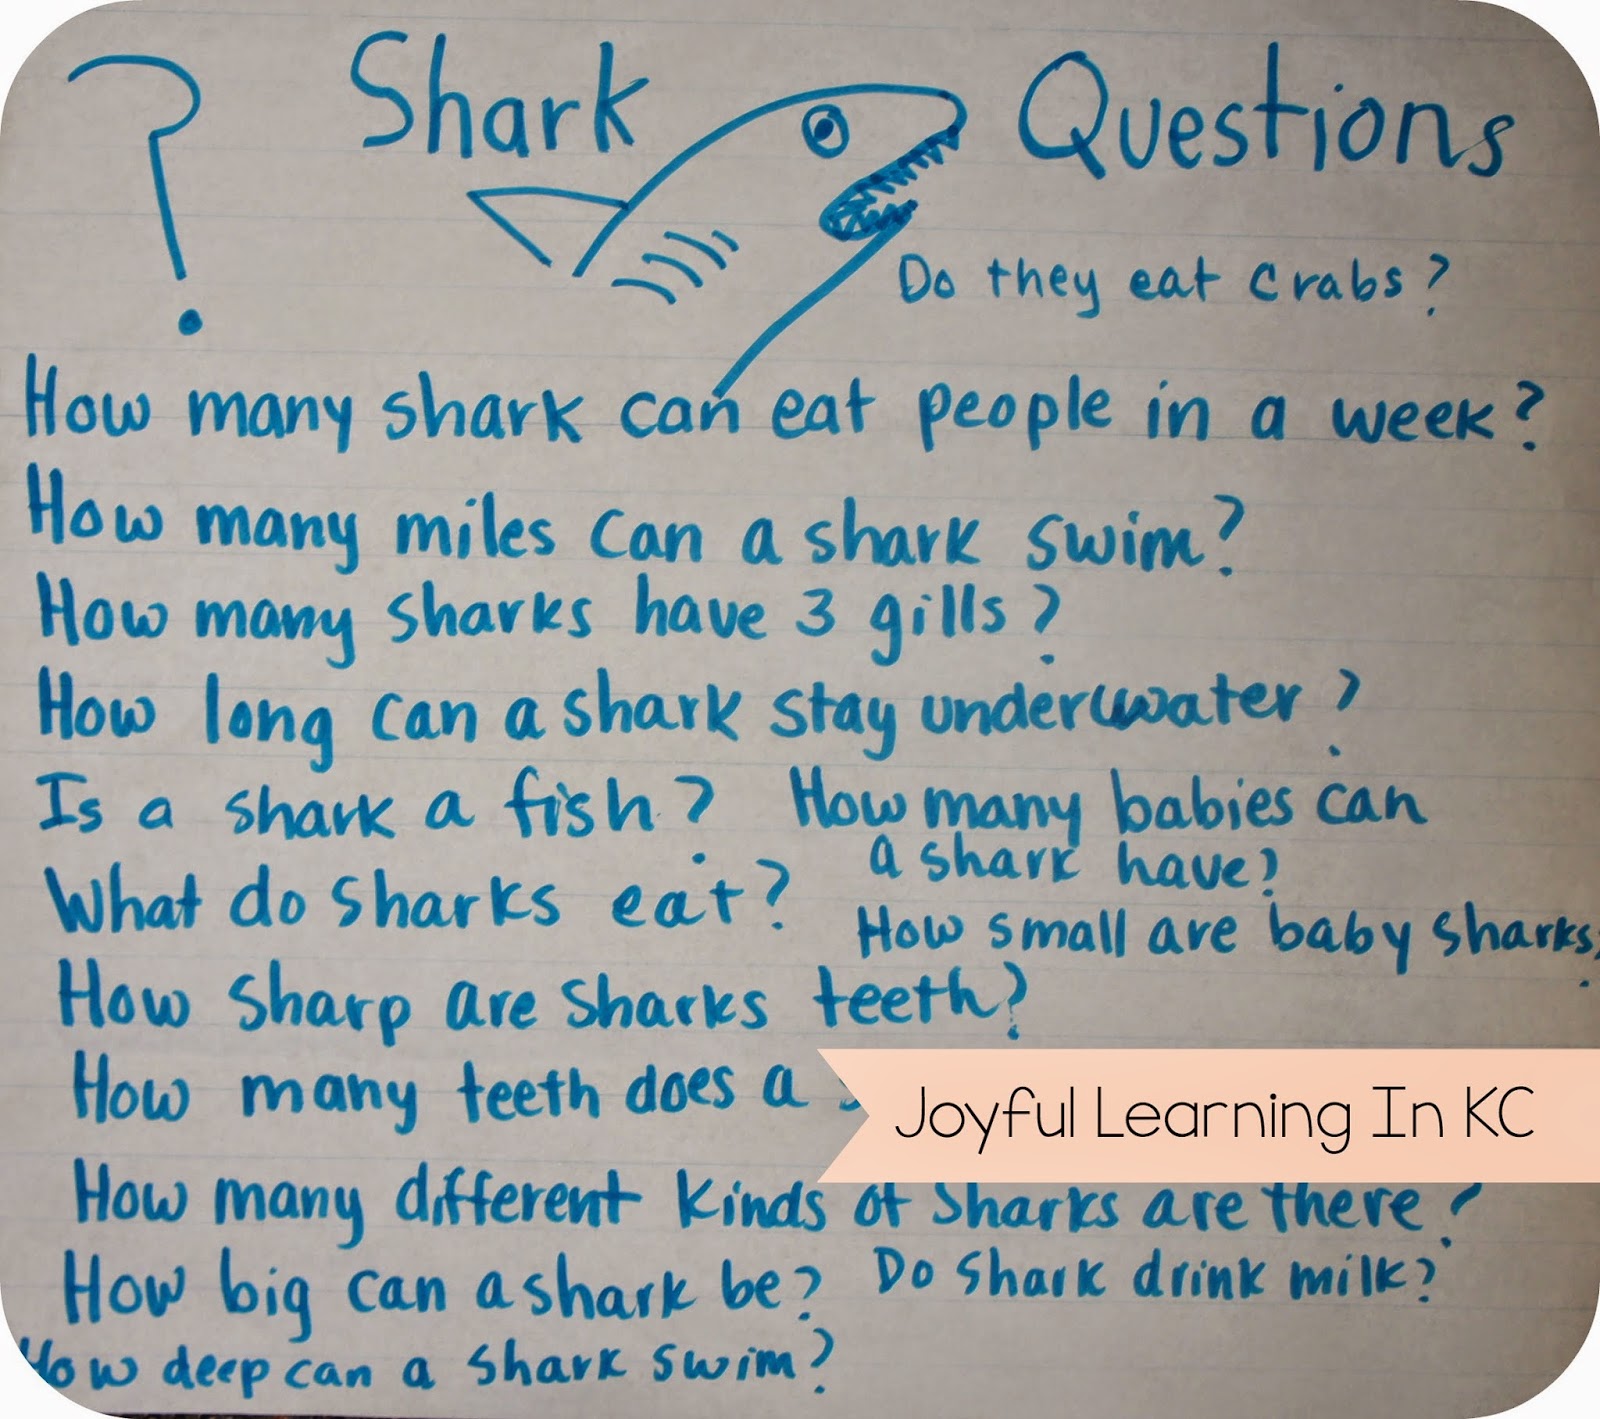 ? Shark Questions
Do they eat crabs?
How many shark can eat people in a week?
How many miles can a shark swim?
How many sharks have 3 gills?
How long can a shark stay underwater?
Is a shark a fish?
How many babies can
a shark have?
What do sharks eat?
How small are baby sharks?
How sharp are sharks teeth?
How many teeth does a
Joyful Learning In KC
How many different kinds of sharks are there?
How big can a shark be?
Do shark drink milk?
How deep can a shark swim?